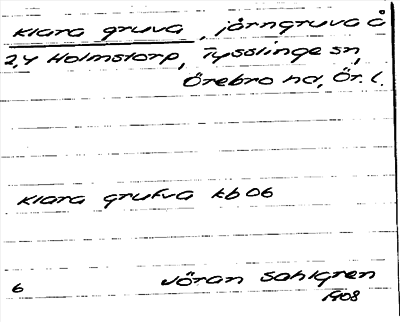 Klara gruva, järngruva å
2,4 Holmstorp, Tysslinge sn,
Örebro hd, Ör. l.
Klara grufva kb 06
6 Jöran Sahlgren
1908